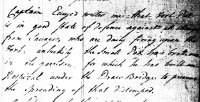 Captain Lloyd writes me that York Fort
is in good state of defence against
from Savages who are daily firing upon
Fort, which is the Small Pox has broke out
in the garrison for which he has built an
Hospital under the Draw Bridge to prevent
the spreading of that distemper.